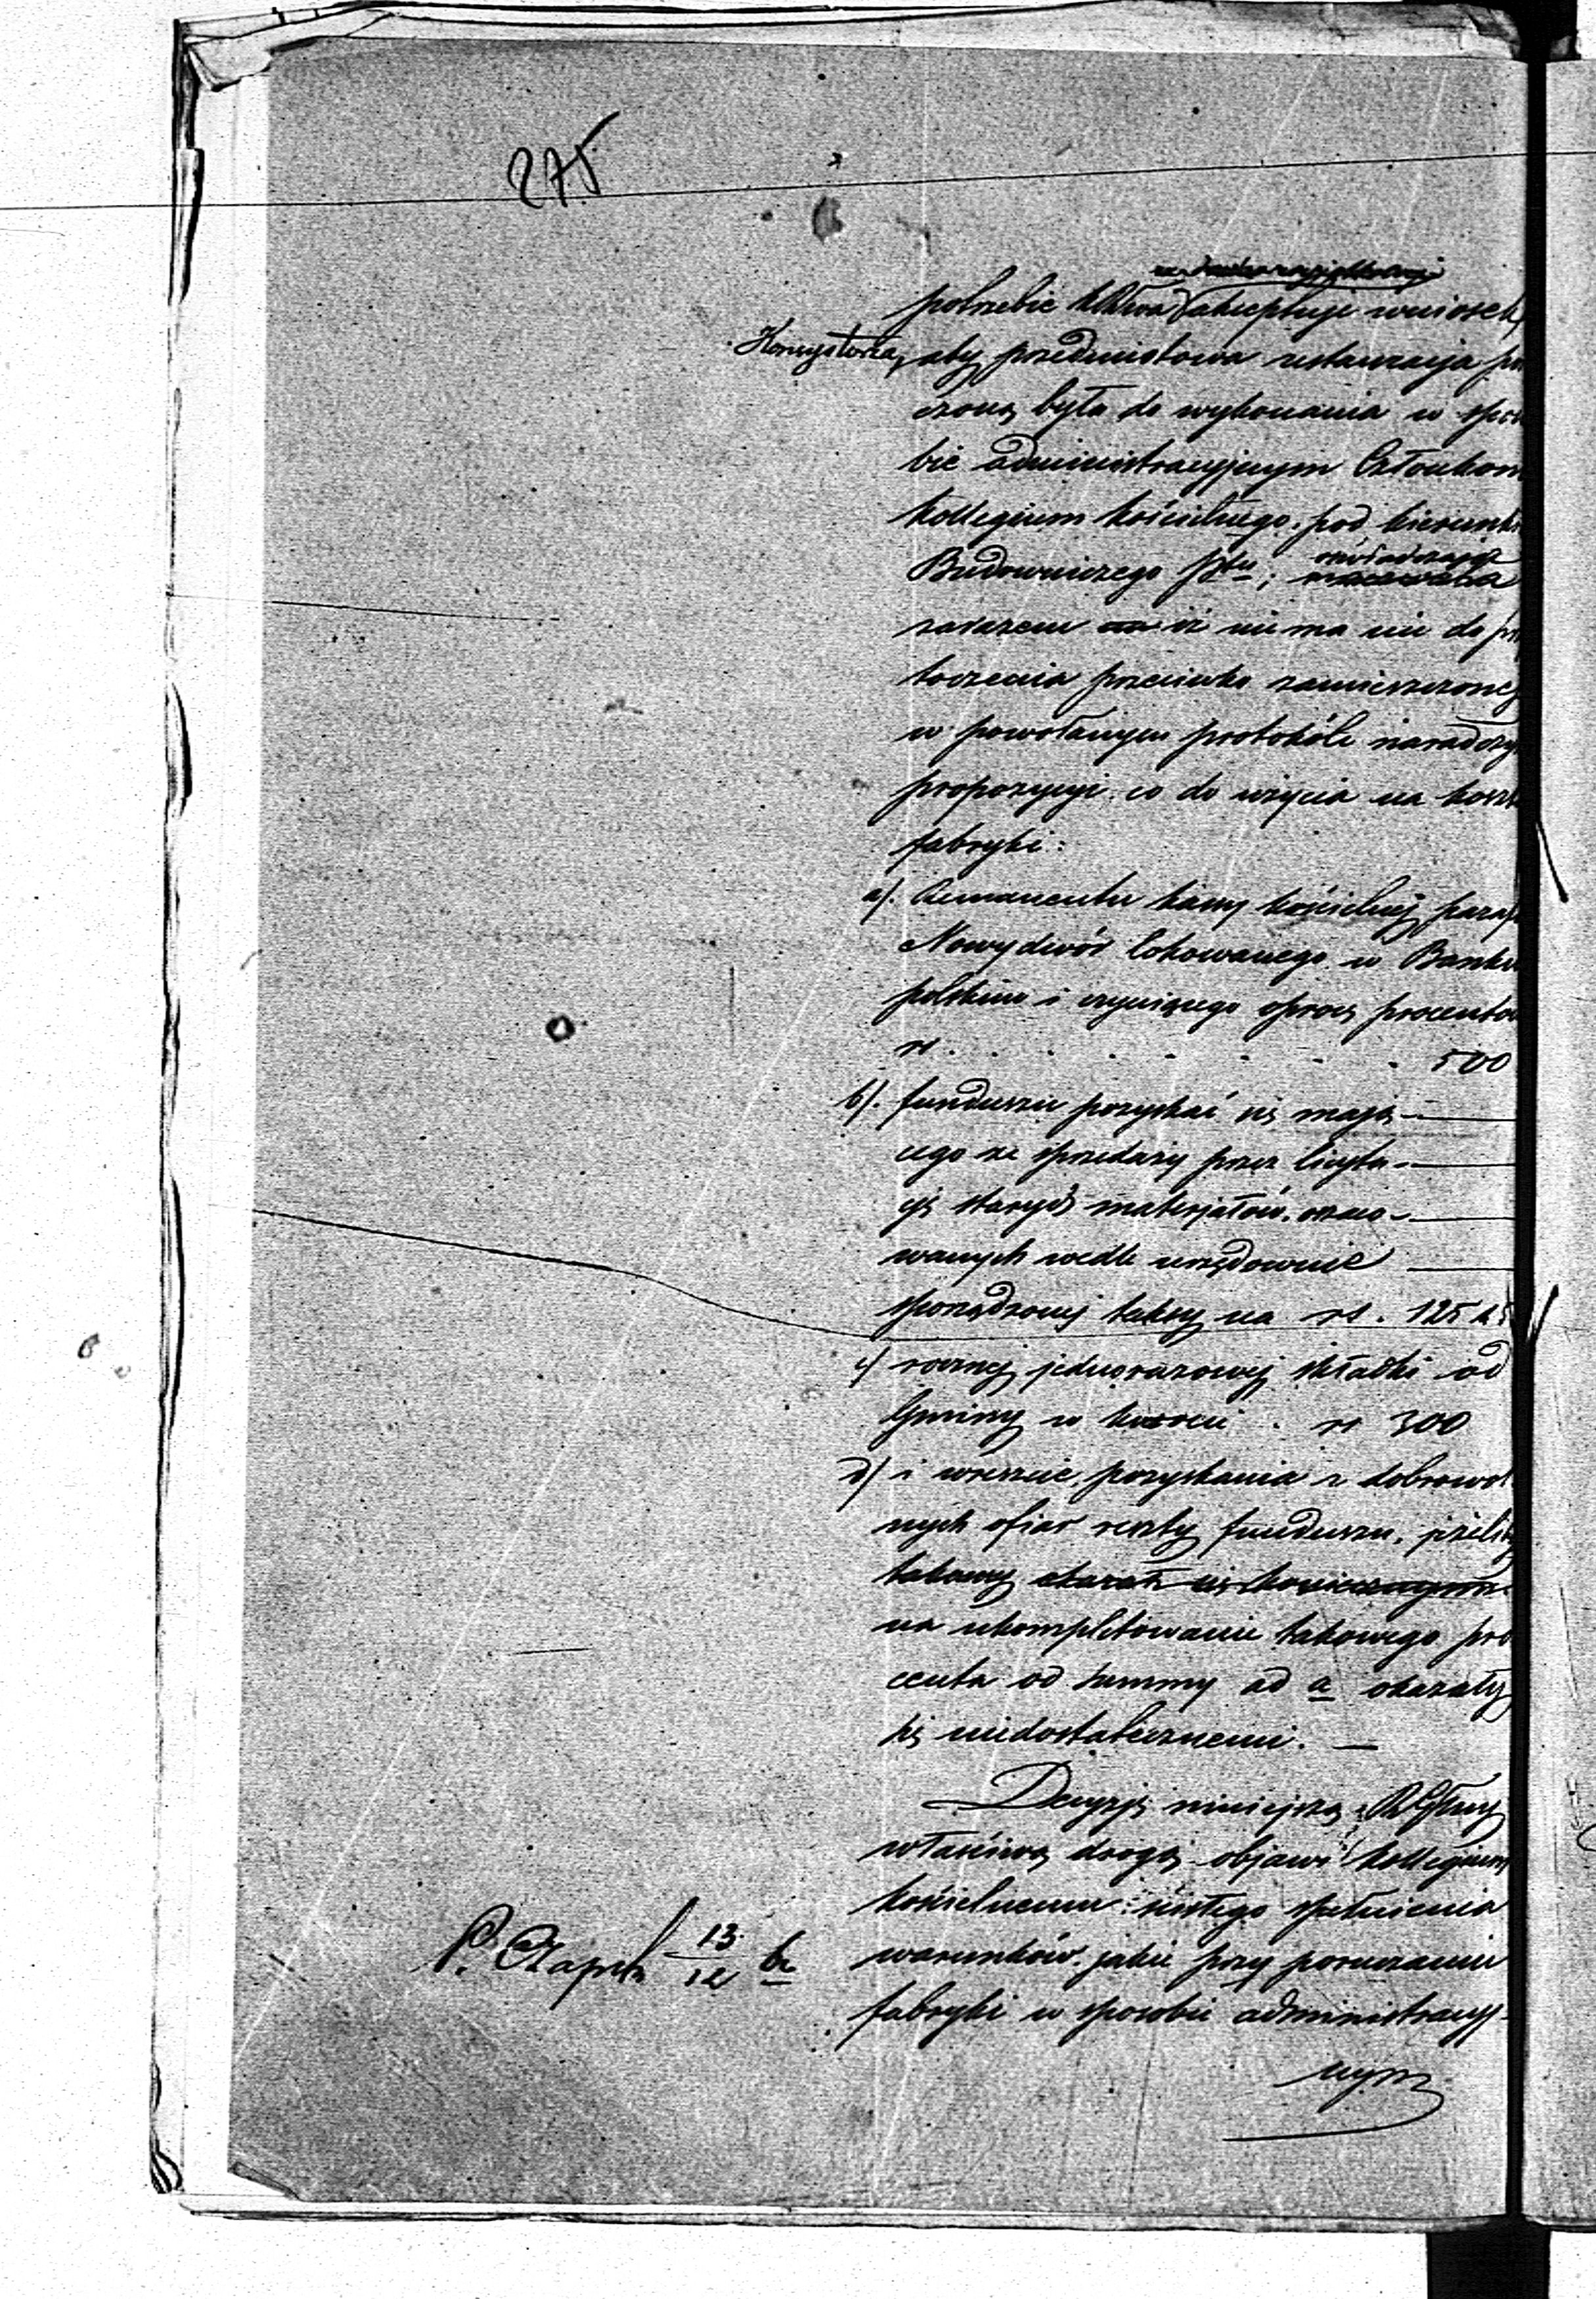 275
potrzebie akceptuje wniosek
Konsystorza, aby przedmiotowa restauracja
czoną była do wykonania w spos
bie administracyjnym Członkom
kollegium kościelnego, pod kierunki
Budowniczego Ptu; oświadczając
zarazem iż niema nic do
toczenia przeciwko zamieszczonej
w powołanym protokóle naradczy
propozycyi co do użycia na kosz
fabryki:
a). Remanentu kassy kościelnej paraf
Nowydwór lokowanego w Banku
polskim i czyniącego oprócz procentów
rs. . . . . . . 500
b). funduszu pozyskać się mają-
cego ze sprzedaży przez licyta-
cją starych materjałów, szaco-
wanych wedle urzędownie
sporządzonej taksy na rs. 125 k
c) rocznej jednorazowej składki od
Gminy w kwocie . rs 300
d) i wreszcie, pozyskania z dobrowol
nych ofiar reszty funduszu, jeżeliby
takowy okazał się koniecznym
na ukompletowanie takowego pro
centa od summy ad a okazały
się niedostatecznemi. —
Decyzją niniejszą R. Gbny
właściwą drogą objawi kollegium
kościelnemu: ścisłego spełnienia
warunków, jakie przy poruczaniu
P. Czapsk 13/12
fabryki w sposobie administracyj-
nym